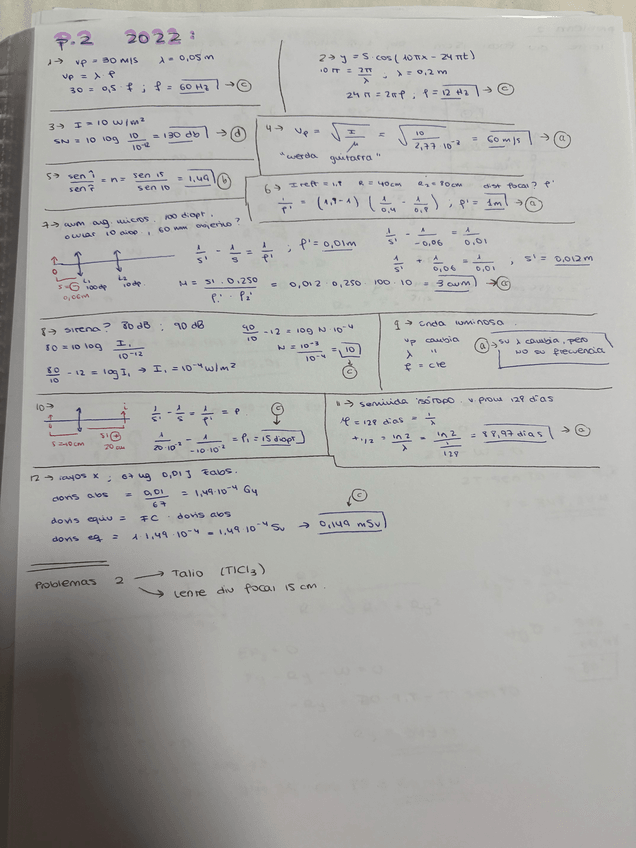 P.2 2022:
1→ vp = 30 m/s λ = 0,05 m
vp = λ f
30 = 0,5 · f ; f = 60 Hz → c
2→ y = 5 cos (10πx - 24πt)
10π = 2π/λ , λ = 0,2 m
24π = 2πf , f = 12 Hz → c
3→ I = 10 W/m²
SN = 10 log 10/10⁻¹² = 130 db → d
4→ Vp = √(T/μ) = √(10/2,77·10⁻³) = 60 m/s → a
"cuerda guitarra"
5→ sen î/sen r̂ = n = sen 15/sen 10 = 1,49 b
6→ I refr = 1,9 R = 40cm R₂ = 80cm dist focal? f'
1/f' = (1,9-1) (1/0,4 - 1/0,8) ; f' = 1m → a
7→ aum ang. micros. 100 diopt.
ocular 10 diop, 60 mm objetivo?
L1 L2
100 dp 10 dp
s = ⊖
0,06m
1/s' - 1/s = 1/f' ; f' = 0,01m
1/s' - 1/-0,06 = 1/0,01
1/s' + 1/0,06 = 1/0,01 , s' = 0,012m
M = s1 · 0,250/f1' · f2' = 0,012 · 0,250 · 100 · 10 = 3 aum → a
8→ sirena? 80 dB ; 90 dB
80 = 10 log I₁/10⁻¹²
80/10 - 12 = log I₁ → I₁ = 10⁻⁴ W/m²
90/10 - 12 = log N 10⁻⁴
N = 10⁻³/10⁻⁴ = 10
c
9→ onda luminosa.
vp cambia
λ "
f = cte
a → su λ cambia, pero
no su frecuencia
10→
s = -10 cm s' ⊕
20 cm
1/s' - 1/s = 1/f' = P
1/20·10⁻² - 1/-10·10⁻² = P₁ = 15 diopt
c
11→ semivida isótopo. v. prom 128 días
τ = 128 días = 1/λ
t1/2 = ln 2/λ = ln 2/1/128 = 88,97 días → a
12→ rayos X ; 67 kg 0,01 J Eabs.
dosis abs = 0,01/67 = 1,49·10⁻⁴ Gy
dosis equiv = FC · dosis abs
dosis eq = 1 · 1,49·10⁻⁴ = 1,49·10⁻⁴ Sv → 0,149 mSv
c
Problemas 2 → Talio (TlCl₃)
→ Lente div focal 15 cm.